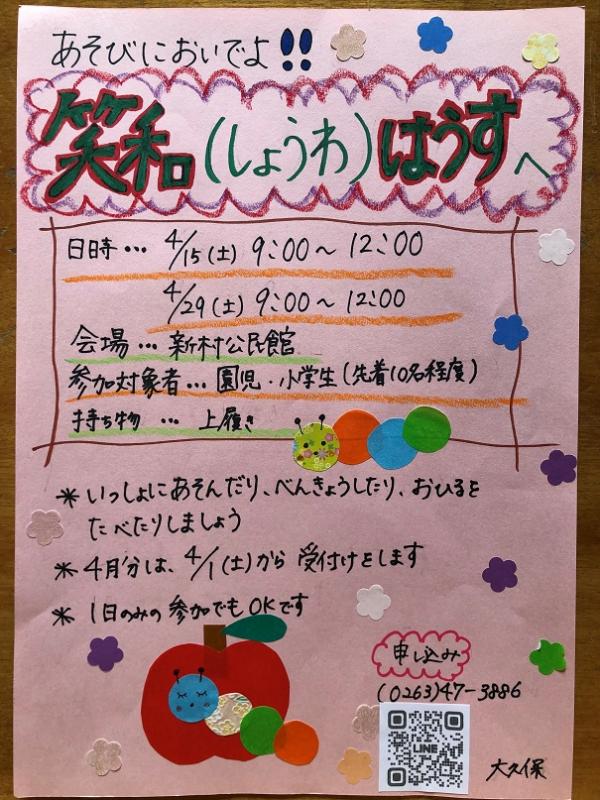 あそびにおいでよ!!
笑和(しょうわ)はうすへ
日時… 4/15(土) 9:00〜12:00
4/29(土) 9:00〜12:00
会場… 新村公民館
参加対象者… 園児・小学生(先着10名程度)
持ち物 … 上履き
* いっしょにあそんだり、べんきょうしたり、おひるを
たべたりしましょう
* 4月分は、4/1(土)から 受付けをします
* 1日のみの参加でもOKです
申し込み
(0263)47-3886
LINE
大久保